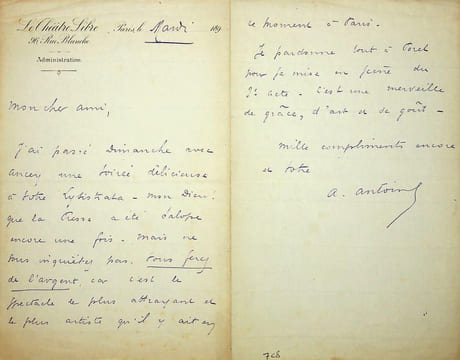 Le Théâtre Libre
96, Rue Blanche
Administration
Paris, le Mardi 189
Mon cher ami,
J'ai passé Dimanche avec
Ancey une soirée délicieuse
à votre Lysistrata - mon Dieu!
que la Presse a été salope
encore une fois - mais ne
vous inquiétez pas, vous ferez
de l'argent, car c'est le
spectacle le plus attrayant et
le plus artiste qu'il y ait en
ce moment à Paris -
Je pardonne tout à Porel
pour sa mise en scène du
2e acte - C'est une merveille
de grâce, d'art et de goût -
Mille compliments encore
et votre
A. Antoine